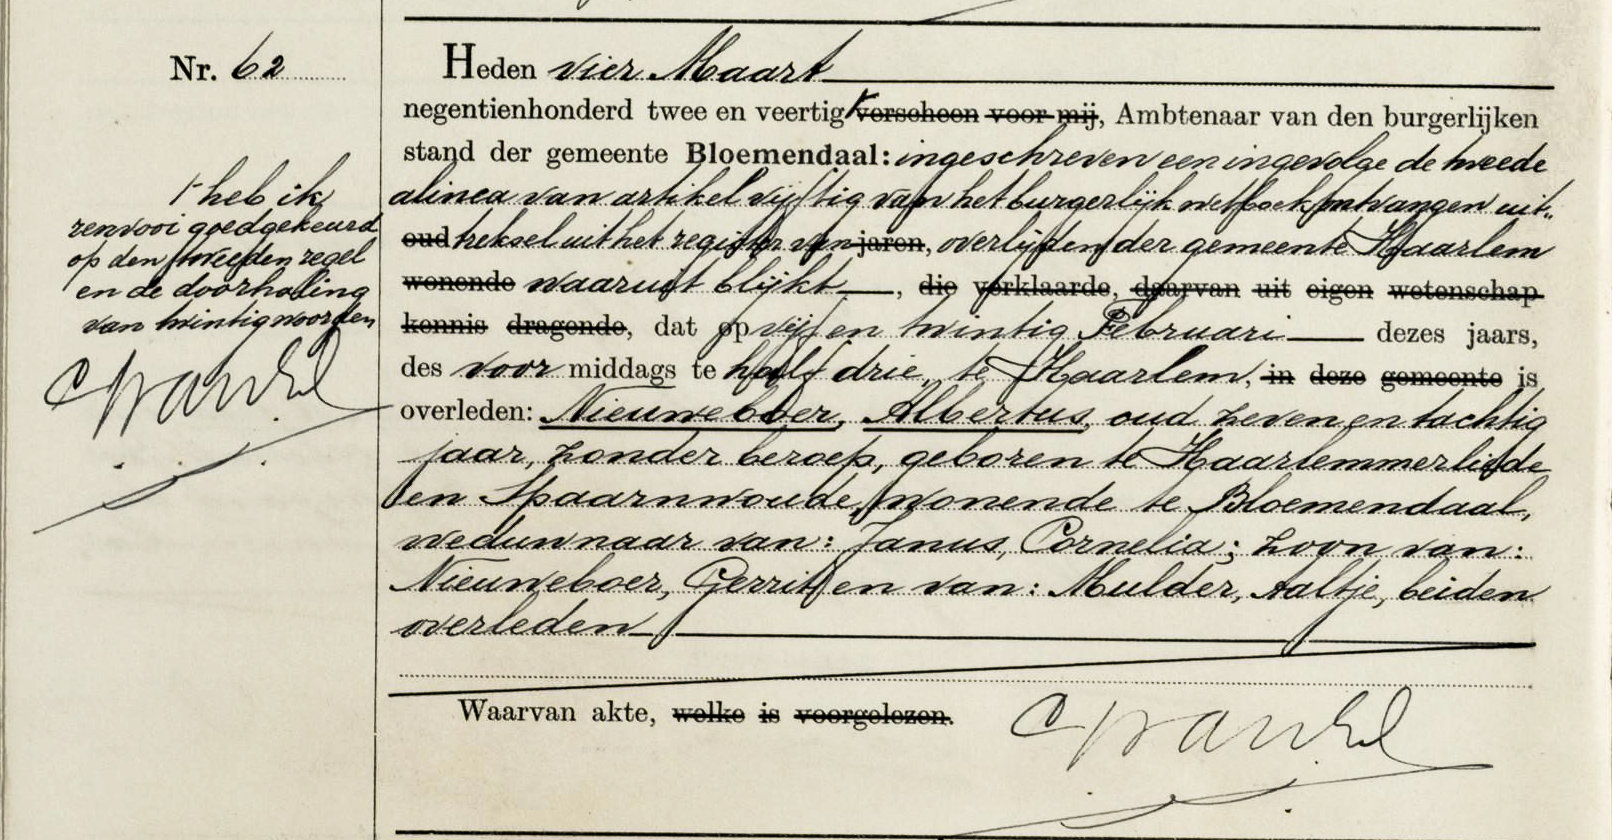 Nr. 62
Heden vier Maart
negentienhonderd twee en veertig ⊦ verscheen voor mij, Ambtenaar van den burgerlijken
stand der gemeente Bloemendaal: ingeschreven een ingevolge de tweede
alinea van artikel vijftig van het burgerlijk wetboek ontvangen uit-
oud treksel uit het register van jaren, overlijden der gemeente Haarlem
wonende waaruit blijkt, die verklaarde, daarvan uit eigen wetenschap
kennis dragende, dat op vijf en twintig Februari dezes jaars,
des voormiddags te half drie, te Haarlem, in deze gemeente is
overleden: Nieuweboer, Albertus, oud zeven en tachtig
jaar, zonder beroep, geboren te Haarlemmerliede
en Spaarnwoude, wonende te Bloemendaal,
weduwnaar van: Janus, Cornelia; zoon van:
Nieuweboer, Gerrit en van: Mulder, Aaltje, beiden
overleden
Waarvan akte, welke is voorgelezen.
⊦ heb ik
renvooi goedgekeurd
op den tweeden regel
en de doorhaling
van twintig woorden